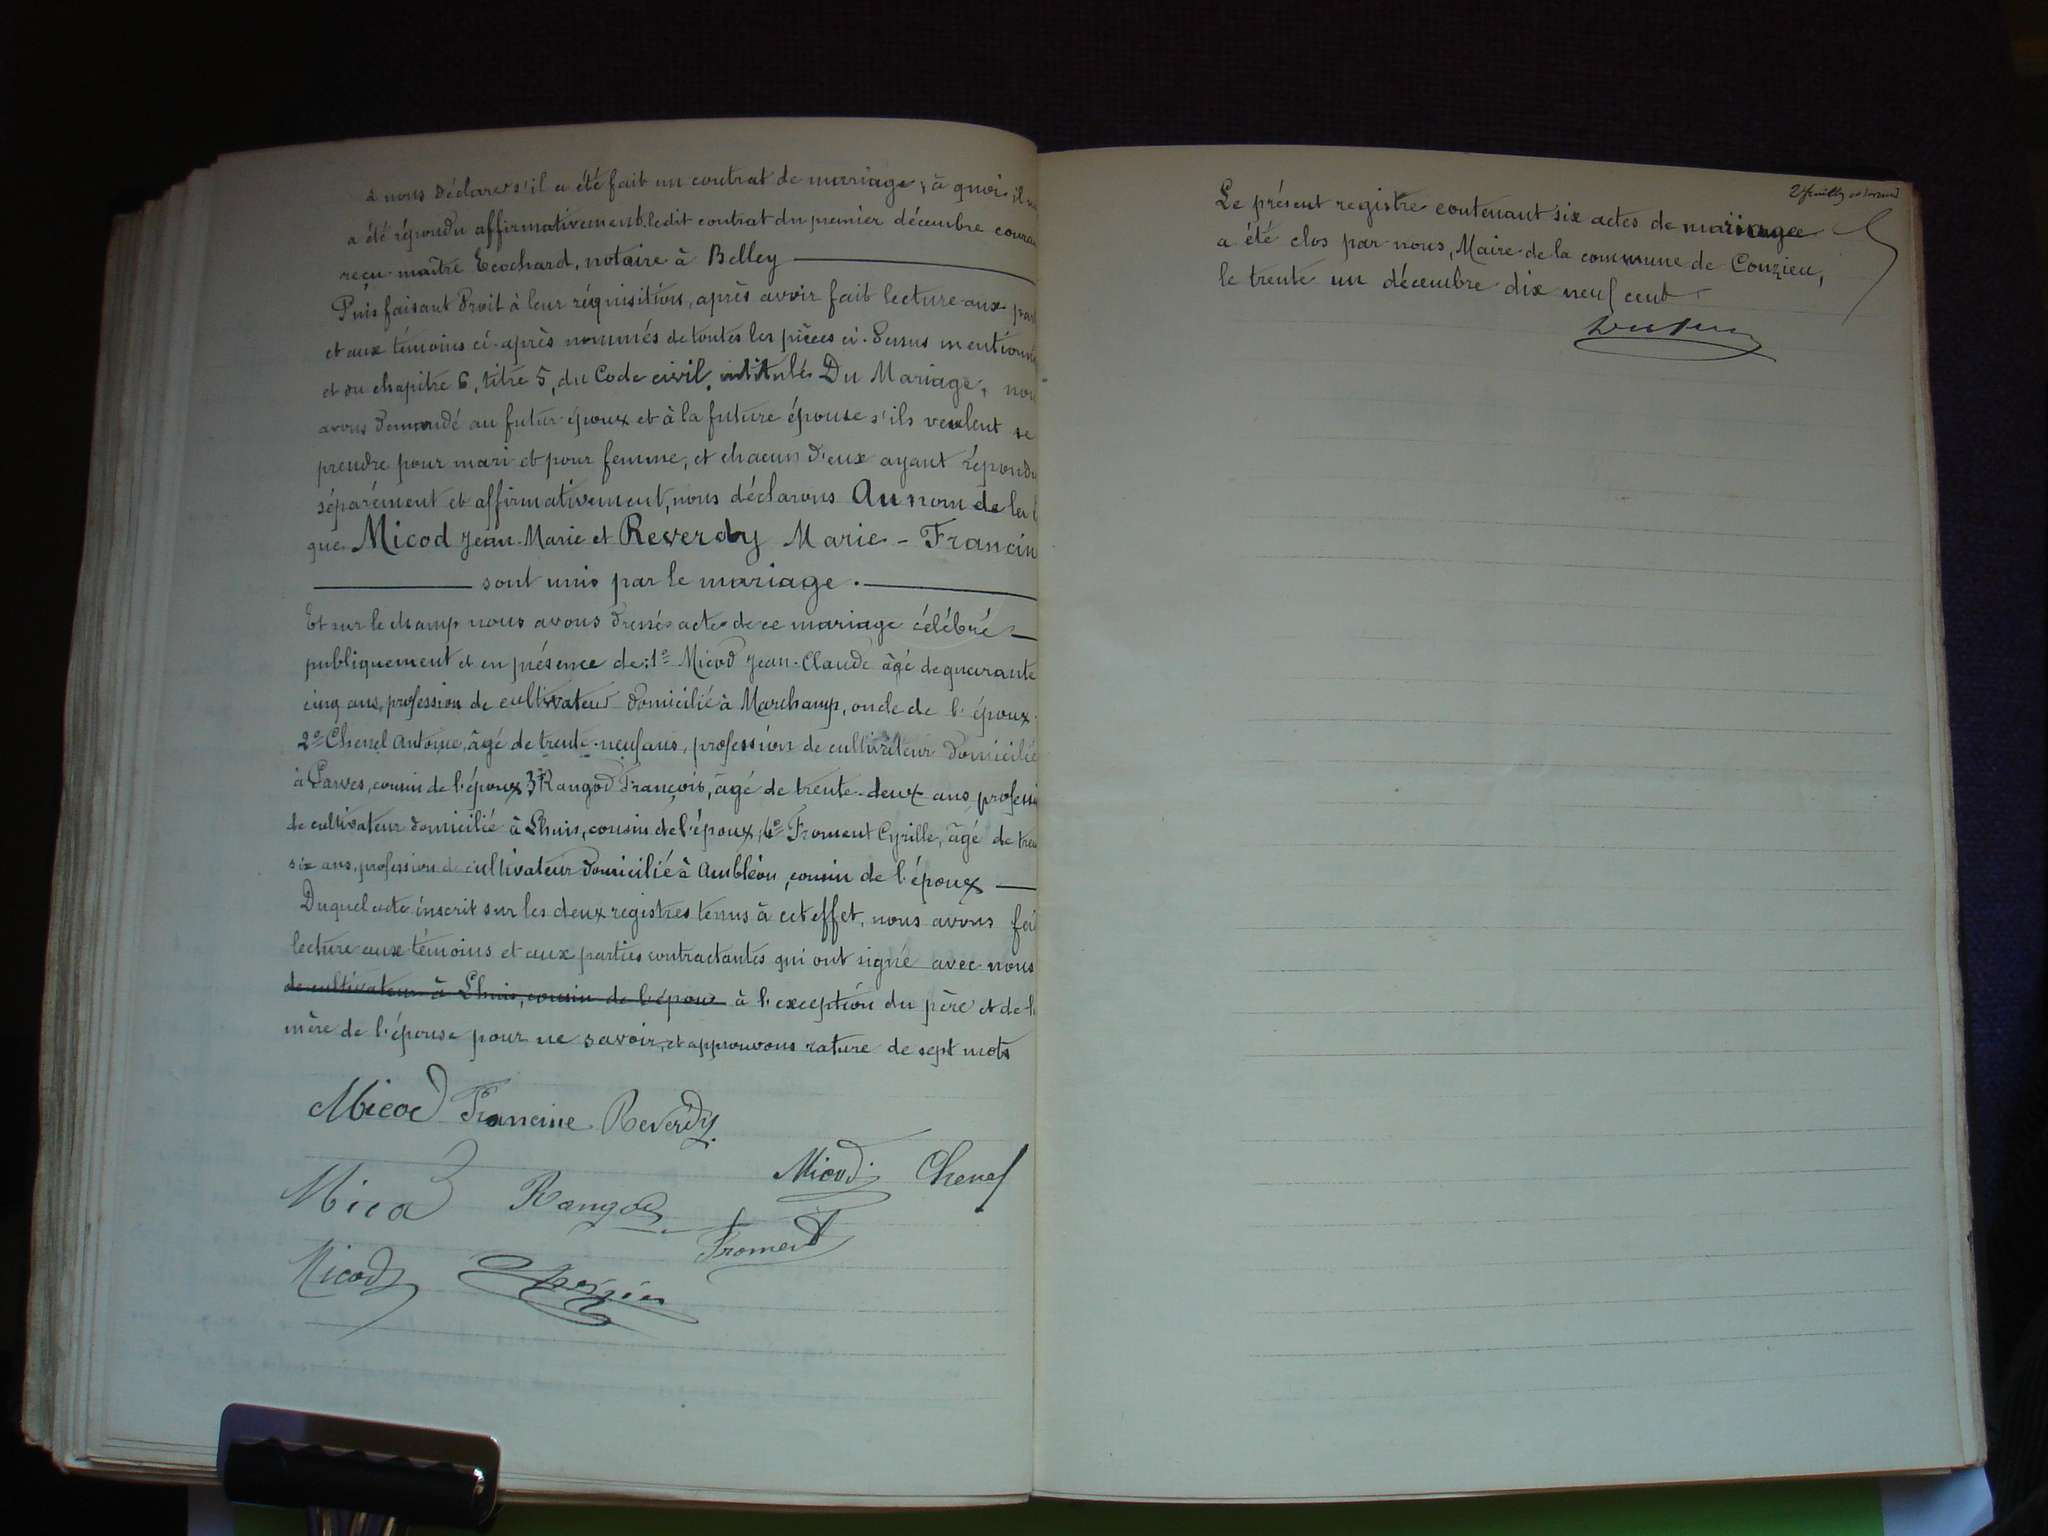 à nous déclarer s'il a été fait un contrat de mariage; à quoi il
a été répondu affirmativement. ledit contrat du premier décembre coura
reçu maître Ecochard, notaire à Belley
Puis faisant droit à leur réquisition, après avoir fait lecture aux par
et aux témoins ci-après nommés de toutes les pièces ci-dessus mentionné
et du chapitre 6, titre 5, du Code civil, intitulé Du Mariage, nou
avons demandé au futur époux et à la future épouse s'ils veulent se
prendre pour mari et pour femme, et chacun d'eux ayant répondu
séparément et affirmativement, nous déclarons Au nom de la l
que Micod Jean-Marie et Reverdy Marie-Francin
sont unis par le mariage.
Et sur le champ nous avons dressé acte de ce mariage célébré
publiquement et en présence de: 1º Micod Jean-Claude âgé de quarante
cinq ans, profession de cultivateur domicilié à Marchamp, oncle de l'époux
2º Chenel Antoine, âgé de trente-neuf ans, profession de cultivateur domicilié
à Parves, cousin de l'époux 3º Rangod François, âgé de trente-deux ans, professi
de cultivateur domicilié à Lhuis, cousin de l'époux, 4º Froment Cyrille, âgé de tren
six ans, profession de cultivateur domicilié à Ambléon, cousin de l'époux
Duquel acte inscrit sur les deux registres tenus à cet effet, nous avons fai
lecture aux témoins et aux parties contractantes qui ont signé avec nous
de cultivateur à Lhuis, cousin de l'époux à l'exception du père et de l
mère de l'épouse pour ne savoir, et approuvons rature de sept mots
Micod Francine Reverdy
Micod Chenel
Micod Rangod
Froment
Micod
2 feuilles
Le présent registre contenant six actes de mariage
a été clos par nous, Maire de la commune de Conzieu,
le trente un décembre dix neuf cent